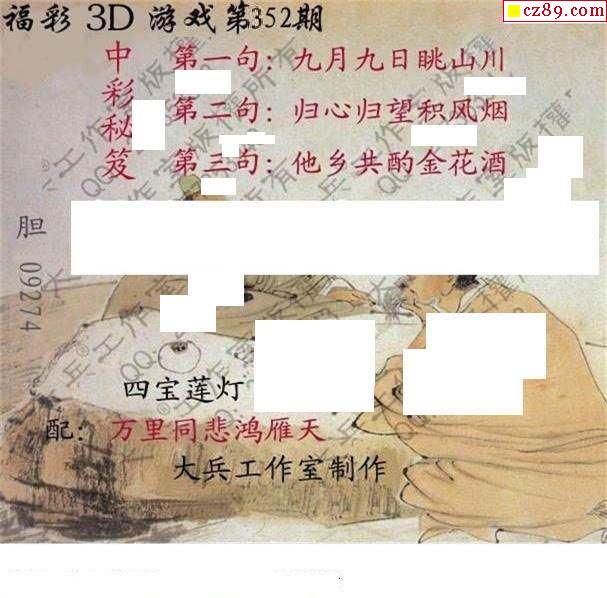 福彩 3D 游戏第352期
cz89.com
中彩秘笈
第一句：九月九日眺山川
第二句：归心归望积风烟
第三句：他乡共酌金花酒
胆 09274
四宝莲灯
配：万里同悲鸿雁天
大兵工作室制作